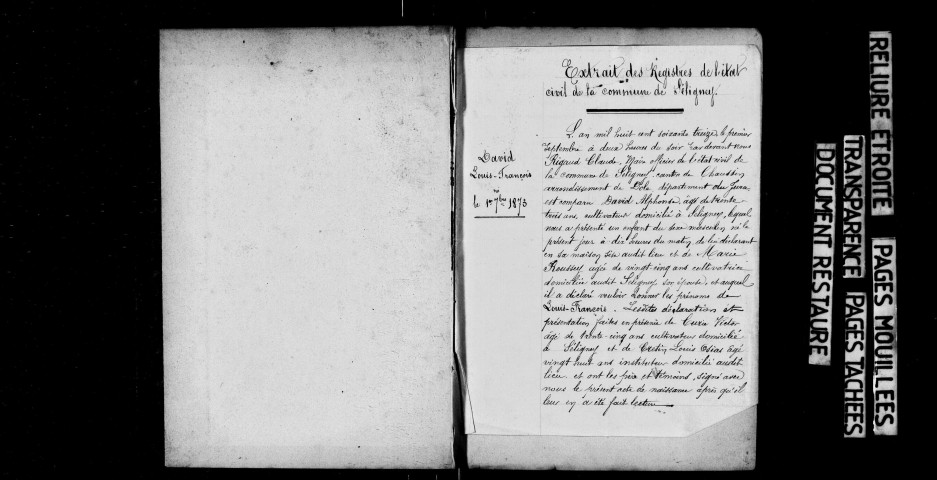 Extrait des Registres de l'état
civil de la commune de Séligney.
David
Louis-François
le 1er 7bre 1873
L'an mil huit cent soixante treize le premier
Septembre à deux heures du soir Par devant nous
Rigaud Claude, Maire officier de l'état civil de
la commune de Séligney canton de Chaussin
arrondissement de Dole département du Jura
est comparu David Alphonse, âgé de trente
trois ans, cultivateur domicilié à Séligney, lequel
nous a présenté un enfant du sexe masculin né le
présent jour à dix heures du matin de lui déclarant
en sa maison sise audit lieu et de Marie
Roussey âgée de vingt cinq ans cultivatrice
domiciliée audit Séligney son épouse, et auquel
il a déclaré vouloir donner les prénoms de
Louis-François. Lesdites déclarations et
présentation faites en présence de Victor
âgé de trente-cinq ans cultivateur domicilié
à Séligney et de Louis âgé
vingt huit ans instituteur domicilié audit
lieu et ont les père et témoins, signé avec
nous le présent acte de naissance après qu'il
leur en a été fait lecture
RELIURE ETROITE
PAGES MOUILLEES
TRANSPARENCE
PAGES TACHEES
DOCUMENT RESTAURE